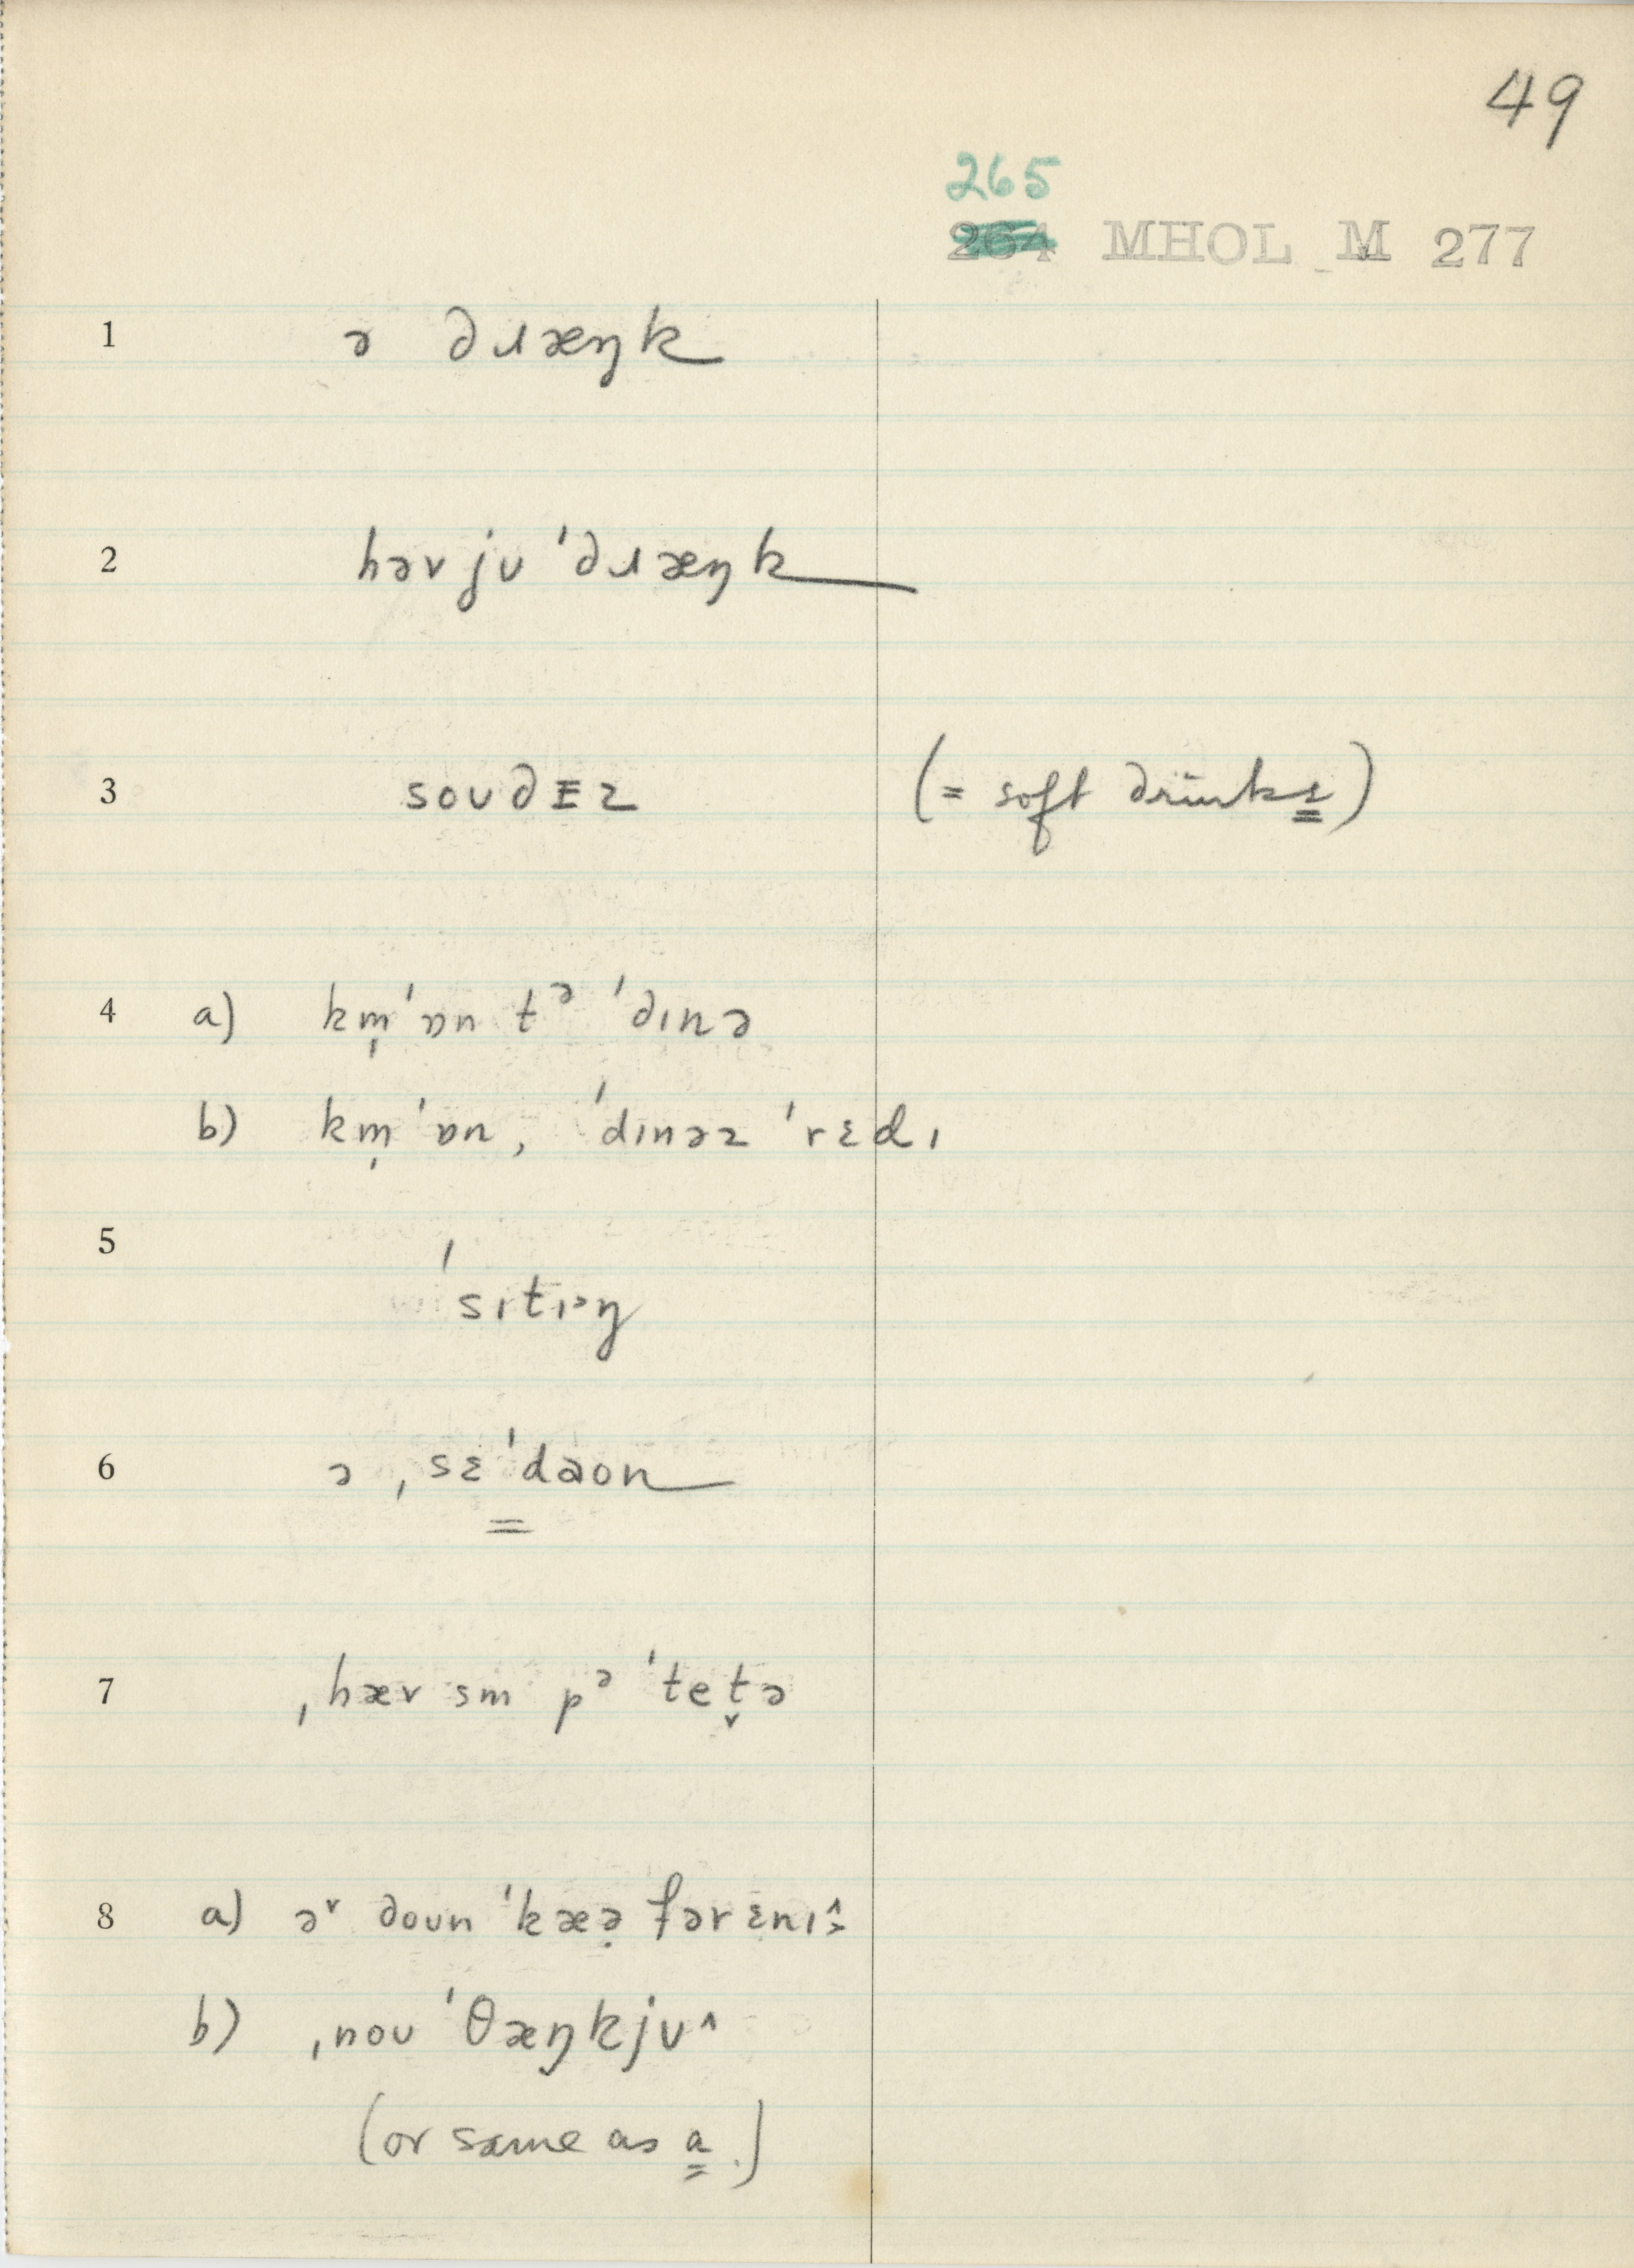 49
265
264 MHOL M 277
1 ə dɹæŋk
2 həv jʊ ˈdɹæŋk
3 soʊdᵻz (= soft drinks)
4 a) km̩ˈɒn tᵊ ˈdɪnə
b) km̩ˈɒn, ˈdɪnəz ˈrɛdɪ
5 ˈsɪtɪ˃ŋ
6 ə ˌsɛˈdaon
7 ˌhæv sm pᵊˈtet̬ə
8 a) ə˅ doʊn ˈkæə̣ fər ɛnɪ
b) ˌnoʊ ˈθæŋkjʊ˄
(or same as a.)